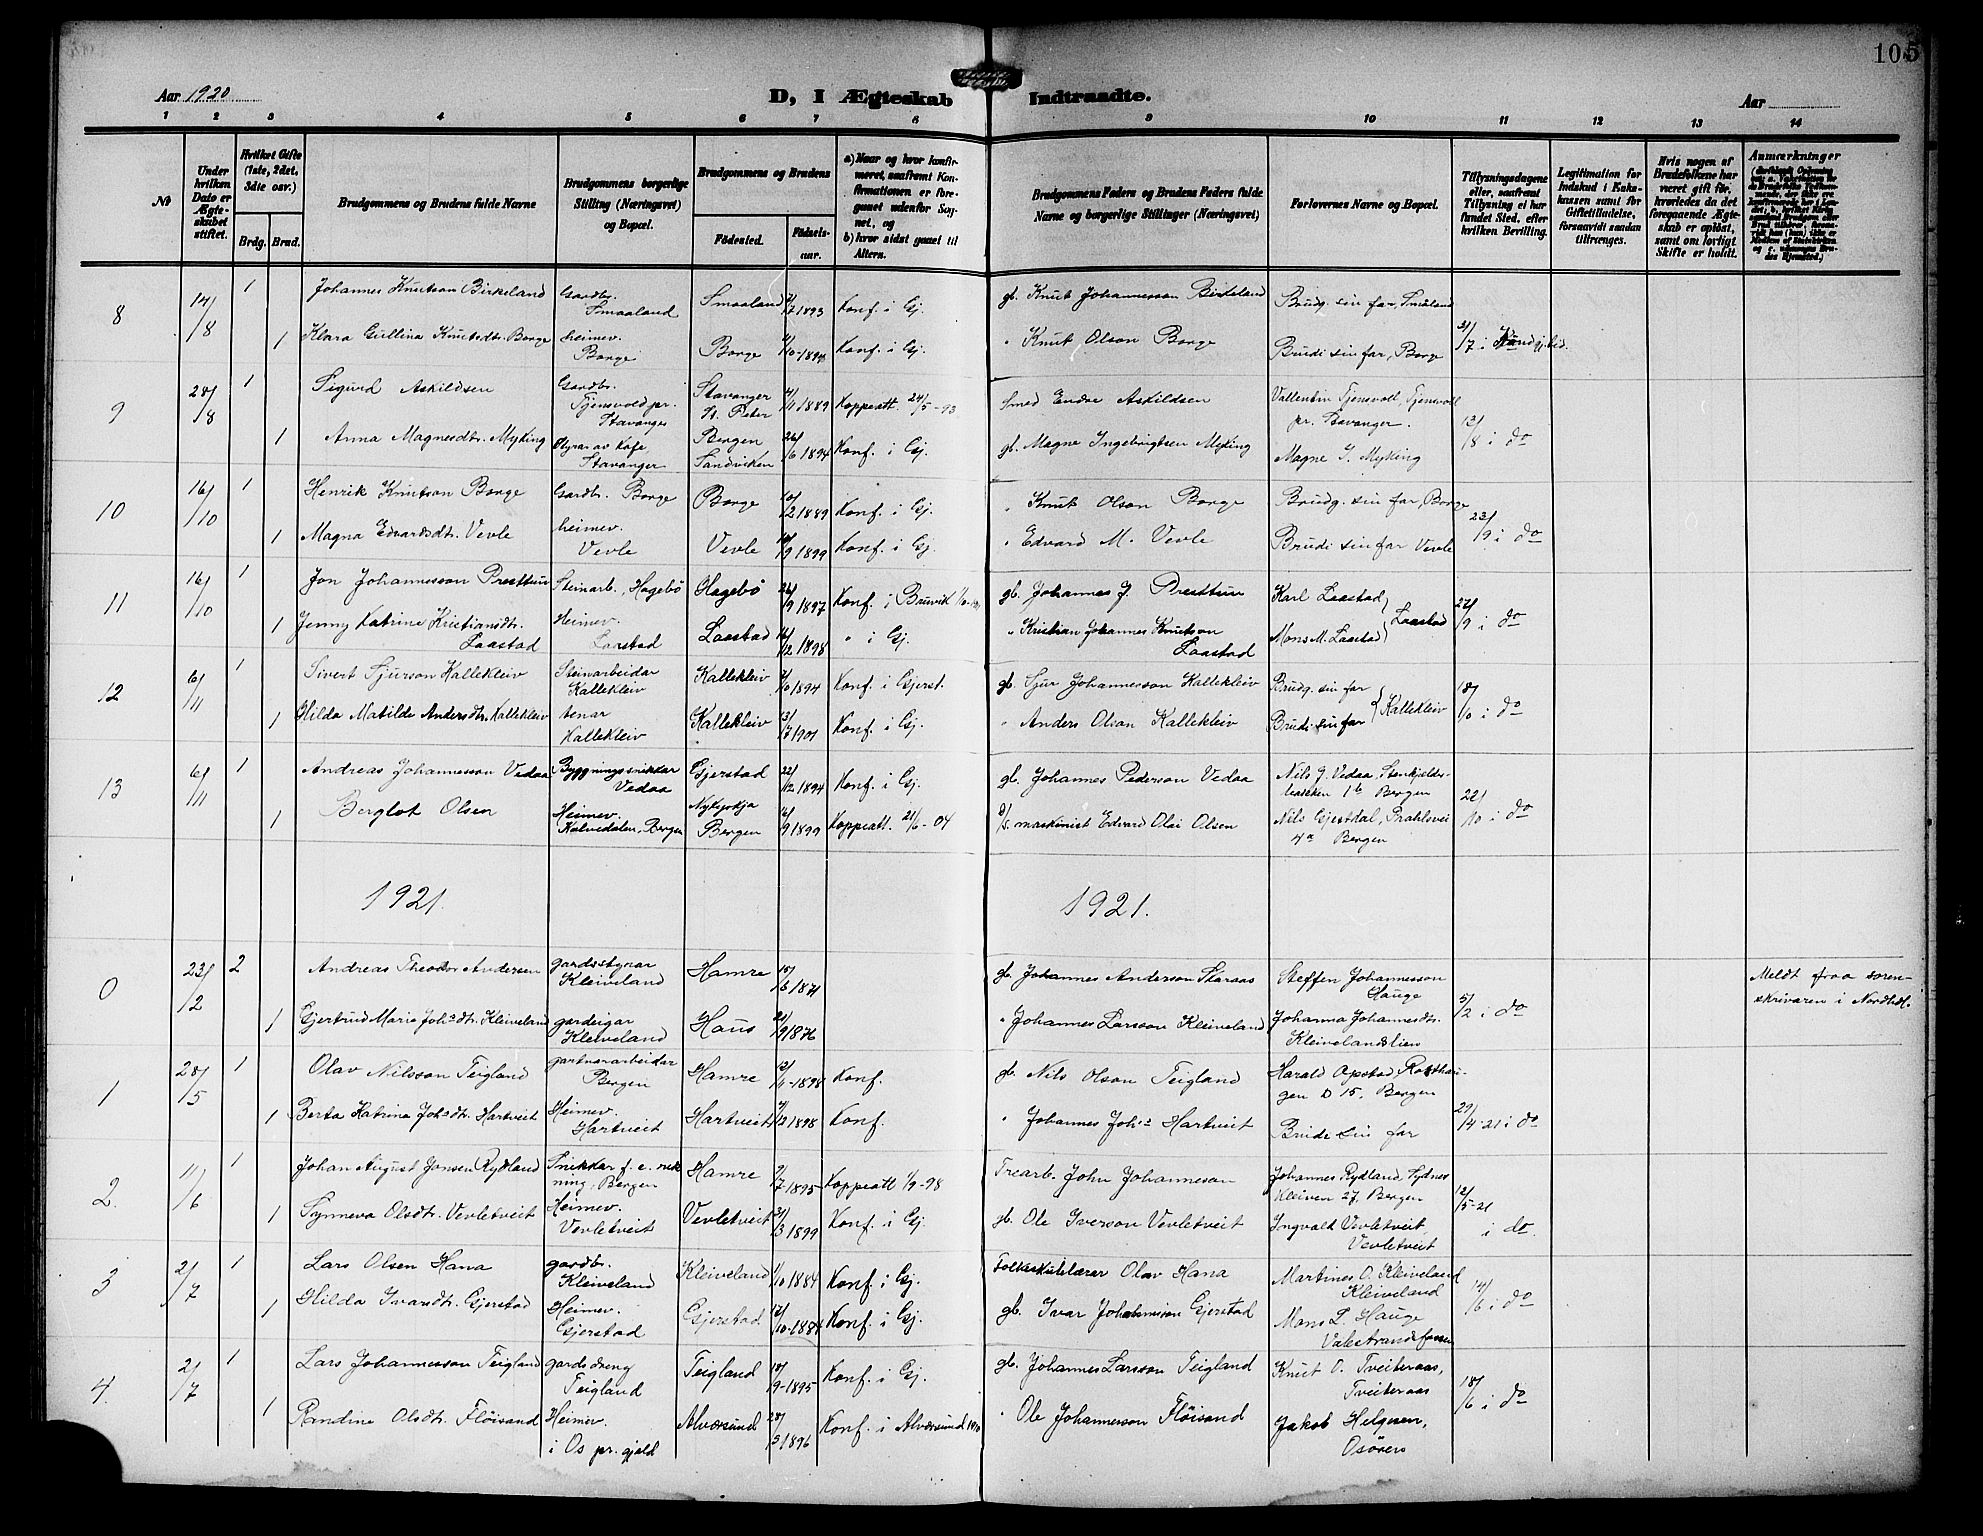 105
Aar 1920
D, I Ægteskab Indtraadte.
Aar
1 2 3 4 5 6 7 8 9 10 11 12 13 14
№
Under hvilken Dato er Ægteskabet stiftet.
Hvilket Gifte (1ste, 2det, 3die osv.)
Brdg. Brud.
Brudgommens og Brudens fulde Navne
Brudgommens borgerlige Stilling (Næringsvei) og Bopæl.
Brudgommens og Brudens
Fødested. Fødselsaar.
a) Naar og hvor konfirmeret, saafremt Konfirmationen er foregaaet udenfor Sognet, og
b) hvor sidst gaaet til Altern.
Brudgommens Faders og Brudens Faders fulde Navne og borgerlige Stillinger (Næringsvei)
Forlovernes Navne og Bopæl.
Tillysningsdagene eller, saafremt Tillysning ei har fundet Sted, efter hvilken Bevilling.
Legitimation for Indskud i Enkekassen samt for Giftetilladelse, forsaavidt saadan tiltrænges.
Hvis nogen af Brudefolkene har været gift før, hvorledes da det foregaaende Ægteskab er opløst, samt om lovligt Skifte er holdt.
Anmærkninger
8 14/8 1 Johannes Knutson Birkeland Gardbr. Smaaland Smaaland 1893 Konf. i Gj. gb. Knut Johannesson Birkeland Brudg. sin far, Småland
1 Klara Gullina Knutsdtr. Borge heimev. Borge Borge Konf. i Gj. " Knut Olson Borge Brudi sin far, Borge 31/7 i
9 28/8 1 Sigurd Askildsen Gardbr. Tjensvold pr. Stavanger Stavanger St. Peter 1889 Koppeatt. 24/5-93 Smed Endre Askildsen Vallentin Tjensvoll, Tjensvoll pr. Stavanger.
1 Anna Magnesdtr. Myking Styrar av kafe Stavanger Bergen Sandviken 26/6 1894 Konf. i Gj. gb. Magne Ingebrigtsen Myking Magne I. Myking 13/8 i do
10 16/10 1 Henrik Knutson Borge Gardbr. Borge Borge 10/2 1889 Konf. i Gj. " Knut Olson Borge Brudg. sin far, Borge
1 Magna Edvardsdtr. Vevle heimev. Vevle Vevle 1899 Konf. i Gj. " Edvard M. Vevle Brudi sin far Vevle 23/9 i do
11 16/10 1 Jon Johannesson Presttun Steinarb., Hagebø Hagebø 26/9 1897 Konf. i Bruvik gb. Johannes J. Presttun Karl Laastad
1 Jenny Katrine Kristiansdtr. Laastad Heimev. Laastad Laastad 16/12 1898 " i Gj. " Kristian Johannes Knutson Laastad Mons M. Laastad } Laastad 27/9 i do
12 6/11 1 Sivert Sjurson Kallekleiv Steinarbeidar Kallekleiv Kallekleiv 1894 Konf. i Gjerst. gb. Sjur Johannesson Kallekleiv Brudg. sin far
1 Hilda Matilde Andersdtr. Kallekleiv tenar Kallekleiv Kallekleiv 13/7 1901 Konf. i Gj. " Anders Olson Kallekleiv Brudi sin far } Kallekleiv 18/10 i do
13 6/11 1 Andreas Johannesson Vedaa Byggningssnikkar Vedaa Gjerstad 22/12 1894 Konf. i Gj. gb. Johannes Pederson Vedaa Nils J. Vedaa, Bergen
1 Bergliot Olsen Heimev. Kalvedalen, Bergen Nykyrkja Bergen 1899 Koppeatt. 21/6-04 d/s. maskinist Edvard Olai Olsen Nils Gjestdal, Prahlsvei 4a Bergen 22/10 i do
1921. 1921.
0 23/2 2 Andreas Theodor Andersen gardsstyrar Kleiveland Hamre 1871 gb. Johannes Anderson Skaraas Steffen Johannesson Hauge Meldt fraa sorenskrivaren i Nordhdl.
1 Gjertrud Marie Johsdtr. Kleiveland gardeigar Kleiveland Haus 1876 " Johannes Larsson Kleiveland Johanna Johannesdtr. Kleivelandslien 5/2 i do
1 28/5 1 Olav Nilsson Teigland gartnararbeidar Bergen Hamre 1898 Konf. gb. Nils Olson Teigland Harald Opstad, Rosthaugen D 15, Bergen
1 Berta Katrina Johsdtr. Hartveit Heimev. Hartveit Hartveit 1898 Konf. " Johannes Johs. Hartveit Brudi sin far 29/4-21 i do
2. 11/6 1 Johan August Jonsen Rydland Snikkar Bergen Hamre 1895 Koppeatt 1/9-98 Trearb. John Johanneson Johannes Rydland, Sydneskleiven 27, Bergen
1 Synneva Olsdtr. Vevletveit Heimev. Vevletveit Vevletveit 31/3 1899 Konf. i Gj. gb. Ole Iverson Vevletveit Ingvald Vevletveit, Vevletveit 12/5-21 i do.
3 2/7 1 Lars Olsen Hana gardbr. Kleiveland Kleiveland 1884 Konf. i Gj. Folkeskulelærer Olav Hana Martines O. Kleiveland Kleiveland
1 Hilda Ivarsdtr. Gjerstad Heimev. Gjerstad Gjerstad 12/10-1884 Konf. i Gj. gb. Ivar Johannesson Gjerstad Mons L. Hauge Valestrandsfossen 14/6 i do
4. 2/7 1 Lars Johannesson Teigland gardsdreng Teigland Teigland 18/9-1895 Konf. i Gj. gb. Johannes Larsson Teigland Knut O. Tveiteraas, Tveiteraas
1 Randine Olsdtr. Fløisand Heimev. i Os pr. gjeld Alversund 1896 Konf. i Alversund " Ole Johannesson Fløisand Jakob Helgesen, Osøren 18/6 i do